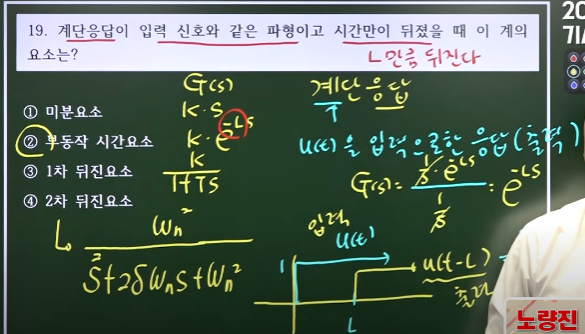 19. 계단응답이 입력 신호와 같은 파형이고 시간만이 뒤졌을 때 이 계의
요소는?
L만큼 뒤진다
G(s)
① 미분요소 K·S
② 부동작 시간요소 K·e^-LS
③ 1차 뒤진요소 K/1+TS
④ 2차 뒤진요소
ωn²
S²+2δωnS+ωn²
계단응답
u(t)을 입력으로한 응답(출력)
G(s) = 1/S·e^-LS / 1/S = e^-LS
입력
u(t)
1
u(t-L) =
출력
L
20
기
노량진